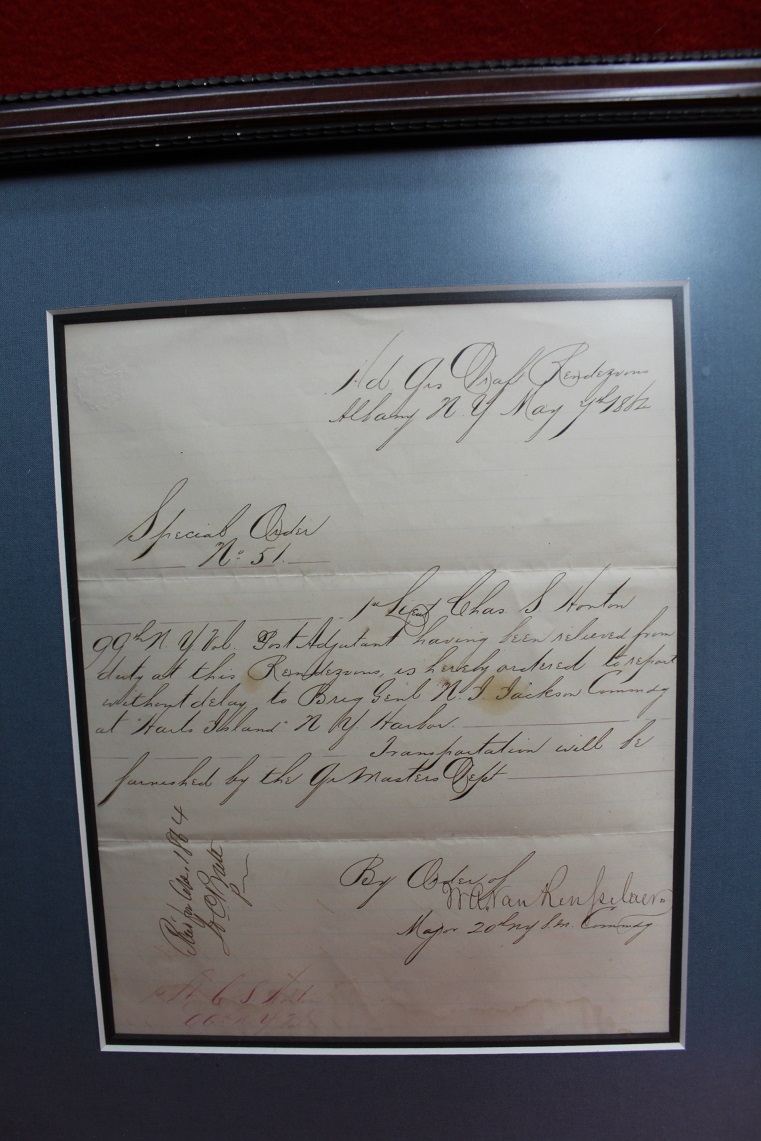 Hd Qrs Draft Rendezvous
Albany N. Y May
Special Order
No 51.
1st Lieut Chas S Horton
99th N. Y Vol. Post Adjutant having been relieved from
duty at this Rendezvous, is hereby ordered to report
without delay to Brig Genl N. J. Jackson Commdg
at "Harts Island" N Y Harbor.
Transportation will be
furnished by the Qr Masters Dept
By Order of
Van Rensselaer
Major 20th Commdg
1864